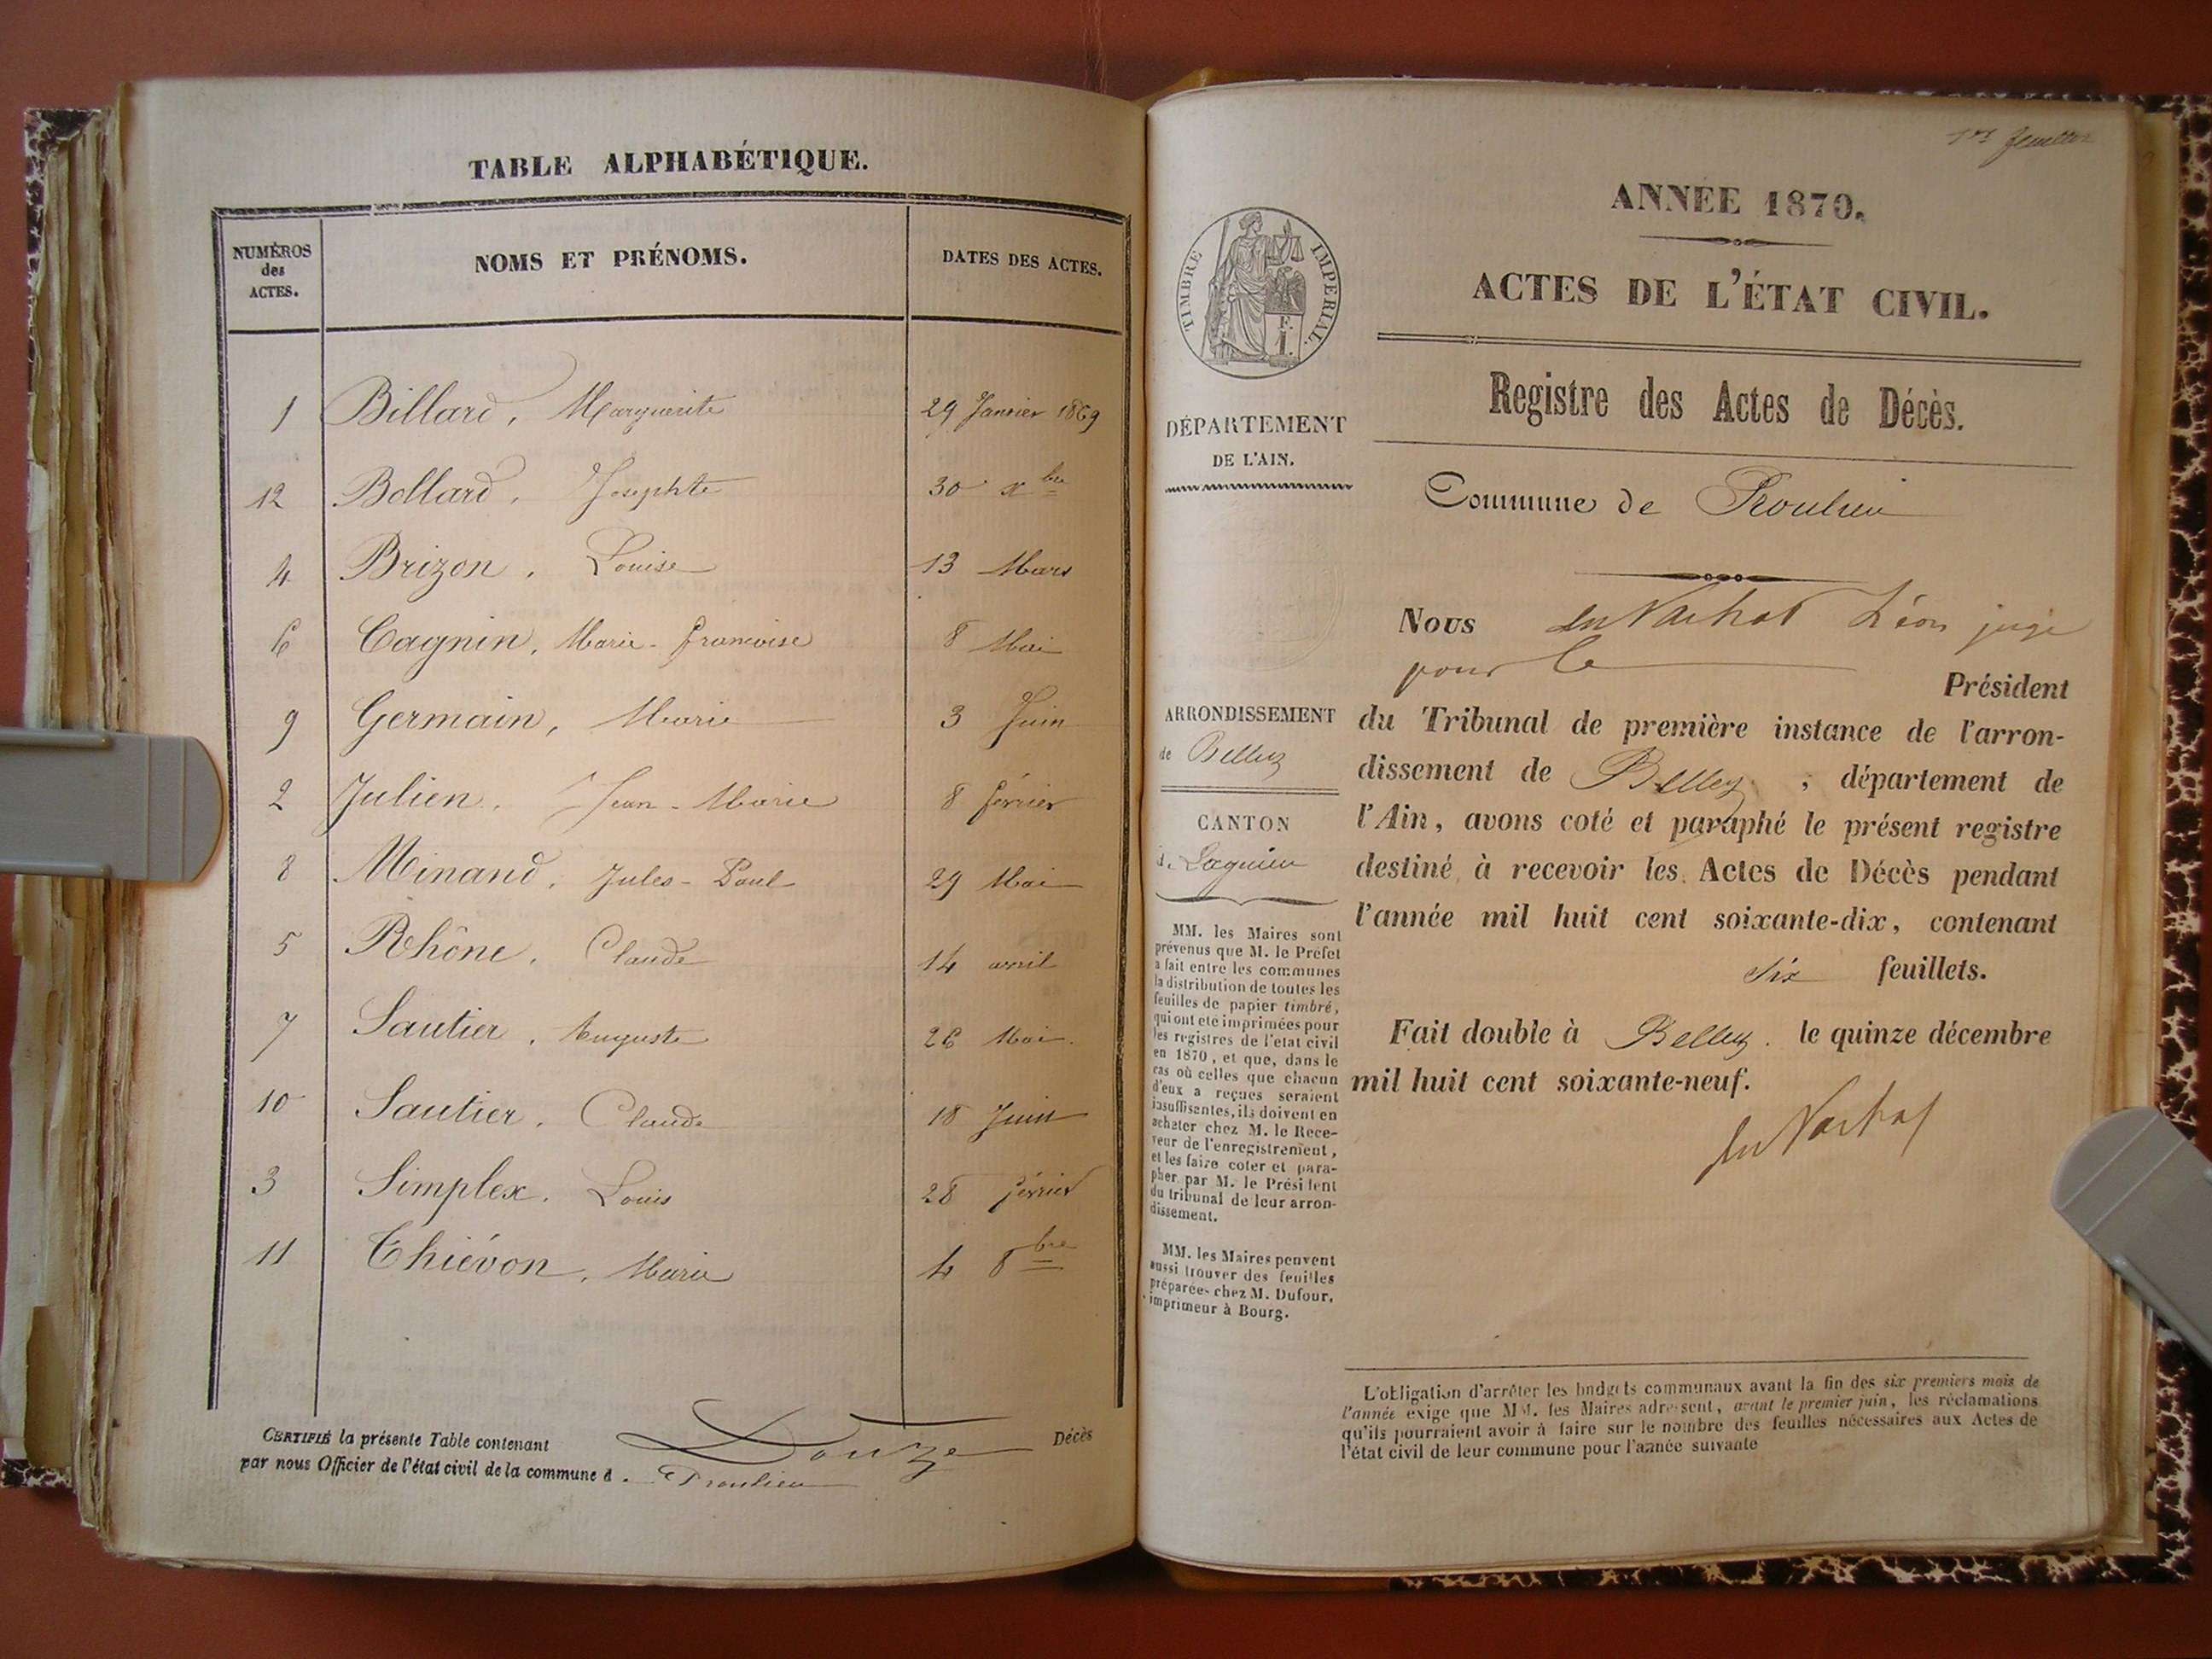 TABLE ALPHABÉTIQUE.
NUMÉROS
des
ACTES.
NOMS ET PRÉNOMS.
DATES DES ACTES.
1 Billard, Marguerite 29 Janvier 1869
12 Bollard, Josephte 30 xbre
4 Brizon, Louise 13 Mars
6 Cagnin, Marie-françoise 8 Mai
9 Germain, Marie 3 Juin
2 Julien, Jean-Marie 8 février
8 Minand, Jules-Paul 29 Mai
5 Rhône, Claude 14 avril
7 Sautier, Auguste 26 Mai.
10 Sautier, Claude 18 Juin
3 Simplex, Louis 28 février
11 Thiévon, Marie 4 8bre
CERTIFIÉ la présente Table contenant Douze Décès
par nous Officier de l'état civil de la commune d. Proulieu
1er feuillet
ANNÉE 1870.
ACTES DE L'ÉTAT CIVIL.
Registre des Actes de Décès.
Commune de Proulieu
TIMBRE IMPERIAL.
F.
1.
DÉPARTEMENT
DE L'AIN.
ARRONDISSEMENT
de Belley
CANTON
d. Lagnieu
MM. les Maires sont
prévenus que M. le Préfet
a fait entre les communes
la distribution de toutes les
feuilles de papier timbré,
qui ont été imprimées pour
les registres de l'état civil
en 1870, et que, dans le
cas où celles que chacun
d'eux a reçues seraient
insuffisantes, ils doivent en
acheter chez M. le Rece-
veur de l'enregistrement,
et les faire coter et para-
pher par M. le Président
du tribunal de leur arron-
dissement.
MM. les Maires peuvent
aussi trouver des feuilles
préparées chez M. Dufour,
imprimeur à Bourg.
Nous Léon juge
pour le Président
du Tribunal de première instance de l'arron-
dissement de Belley, département de
l'Ain, avons coté et paraphé le présent registre
destiné à recevoir les Actes de Décès pendant
l'année mil huit cent soixante-dix, contenant
six feuillets.
Fait double à Belley. le quinze décembre
mil huit cent soixante-neuf.
L'obligation d'arrêter les budgets communaux avant la fin des six premiers mois de
l'année exige que MM. les Maires adressent, avant le premier juin, les réclamations
qu'ils pourraient avoir à faire sur le nombre des feuilles nécessaires aux Actes de
l'état civil de leur commune pour l'année suivante